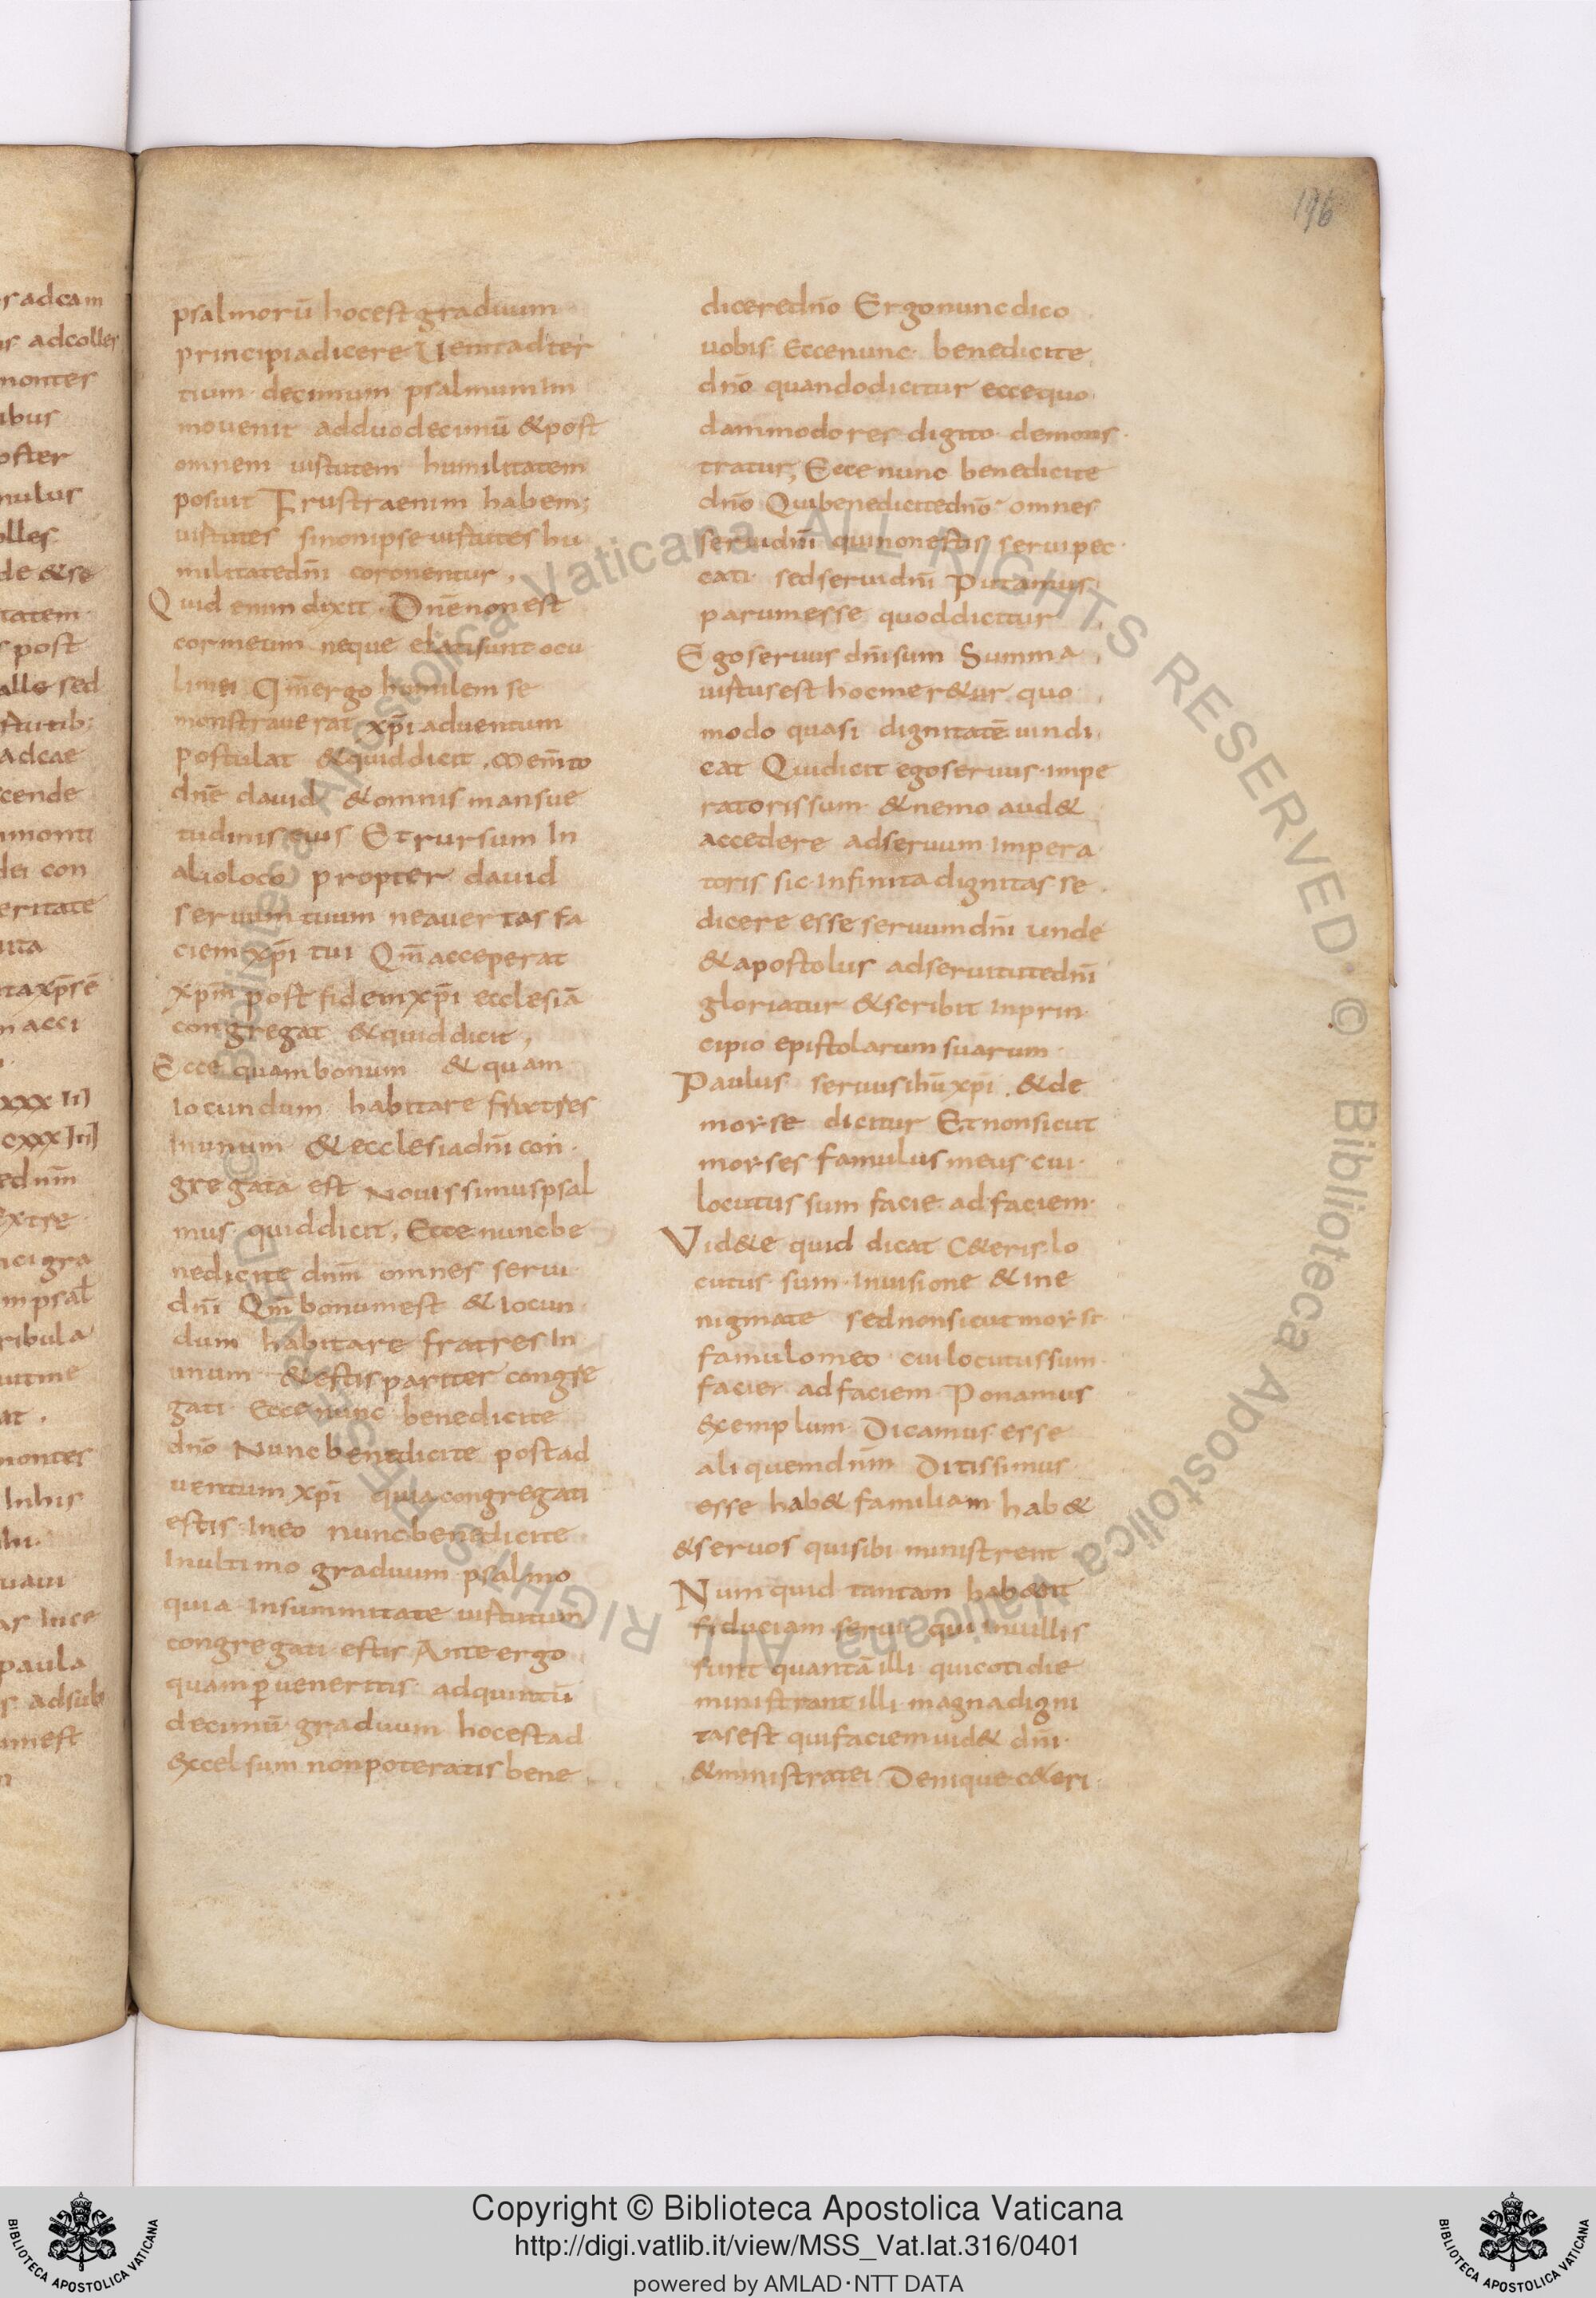 196
psalmorū hocest graduum
principia dicere Uenit ad ter
tium decimum psalmum Im
mo uenit adduodecimū &post
omnem uistutem humilitatem
posuit Frustraenim habem;
uistutes sinonipse uistutes hu
militatedn̄i coronentur,
Quid enim dixit. Dn̄enonest
cormeum neque elatisunt ocu
limei Qm̄ergo humilem se
monstrauerat xp̄i aduentum
postulat &quiddicit, Mem̄to
dn̄e dauid &omnismansue
tudinis eius Etrursum In
alioloco propter dauid
seruum tuum neauertas fa
ciem xp̄i tui Qm̄acceperat
xpm̄ post fidemxp̄i ecclesiā
congregat &quiddicit,
Ecce quambonum & quam
Iocundum habitare fratres
Inunum &ecclesiadn̄i con
gregata est Nouissimuspsal
mus quiddicit, Ecce nuncbe
nedicite dnm̄ omnes serui
dn̄i Qm̄ bonumest & Iocun
dum habitare fratres In
unum &estis pariter congre
gati Ecce nunc benedicite
dn̄o Nunc benedicite postad
uentum xp̄i quia congregati
estis Ineo nuncbenedicite
Inultimo graduum psalmo
quia Insummitate uistutum
congregati estis Ante ergo
quamp̱ueneritis adquintū
decimū graduum hocestad
&xcelsum nonpoteratis bene
diceredn̄o Ergonuncdico
uobis Eccenunc benedicite
dn̄o quandodicitur eccequo
dammodo res digito demons
tratur, Ecce nunc benedicite
dn̄o Quibenedicitedn̄o omnes
seruidn̄i quinonestis seruipec
cati sedseruidn̄i Putamus
parumesse quoddicitur
Egoseruus dn̄isum Summa
uistusest hocmer&ur quo
modo quasi dignitatē uindi
cat Quidicit egoseruus Impe
ratorissum &nemo aud&
accedere adseruum Impera
toris sic Infinita dignitas se
dicere esse seruumdn̄i unde
&apostolus adseruitutedn̄i
gloriatur &scribit Inprin
cipio epistolarum suarum
Paulus seruusihū xp̄i, &de
morse dicitur Etnonsicut
morses famulus meus cui
locutus sum facie ad faciem
Vid&e quid dicat C&eris lo
cutus sum Inuisione &Ine
nigmate sednonsicutmorse
famulomeo cuilocutussum
facier adfaciem Ponamus
&xemplum Dicamus esse
aliquemdnm̄ Ditissimus
esse hab& familiam hab&
&seruos quisibi ministrent
Numquid tantam habent
fiduciam serui qui Inuillis
sunt quantā illi quicotidie
ministrant illi magnadigni
tasest quifaciemuid& dn̄i
&ministratei Deniquec&eri
s adeam
ir adcolles
montes
ibus
oster
mulus
olles
de &se
tatem
s post
allo sed
adcae
cende
nmonti
dei con
eritate
uita
n acci
CXXXIII
ednm̄
ici gra
m psal
ribula
at.
montes
Inhis
paula
s adsub
mest
© Biblioteca Apostolica Vaticana ALL RIGHTS RESERVED
© Biblioteca Apostolica Vaticana ALL RIGHTS RESERVED
Copyright © Biblioteca Apostolica Vaticana
http://digi.vatlib.it/view/MSS_Vat.lat.316/0401
powered by AMLAD·NTT DATA
BIBLIOTECA APOSTOLICA VATICANA
BIBLIOTECA APOSTOLICA VATICANA